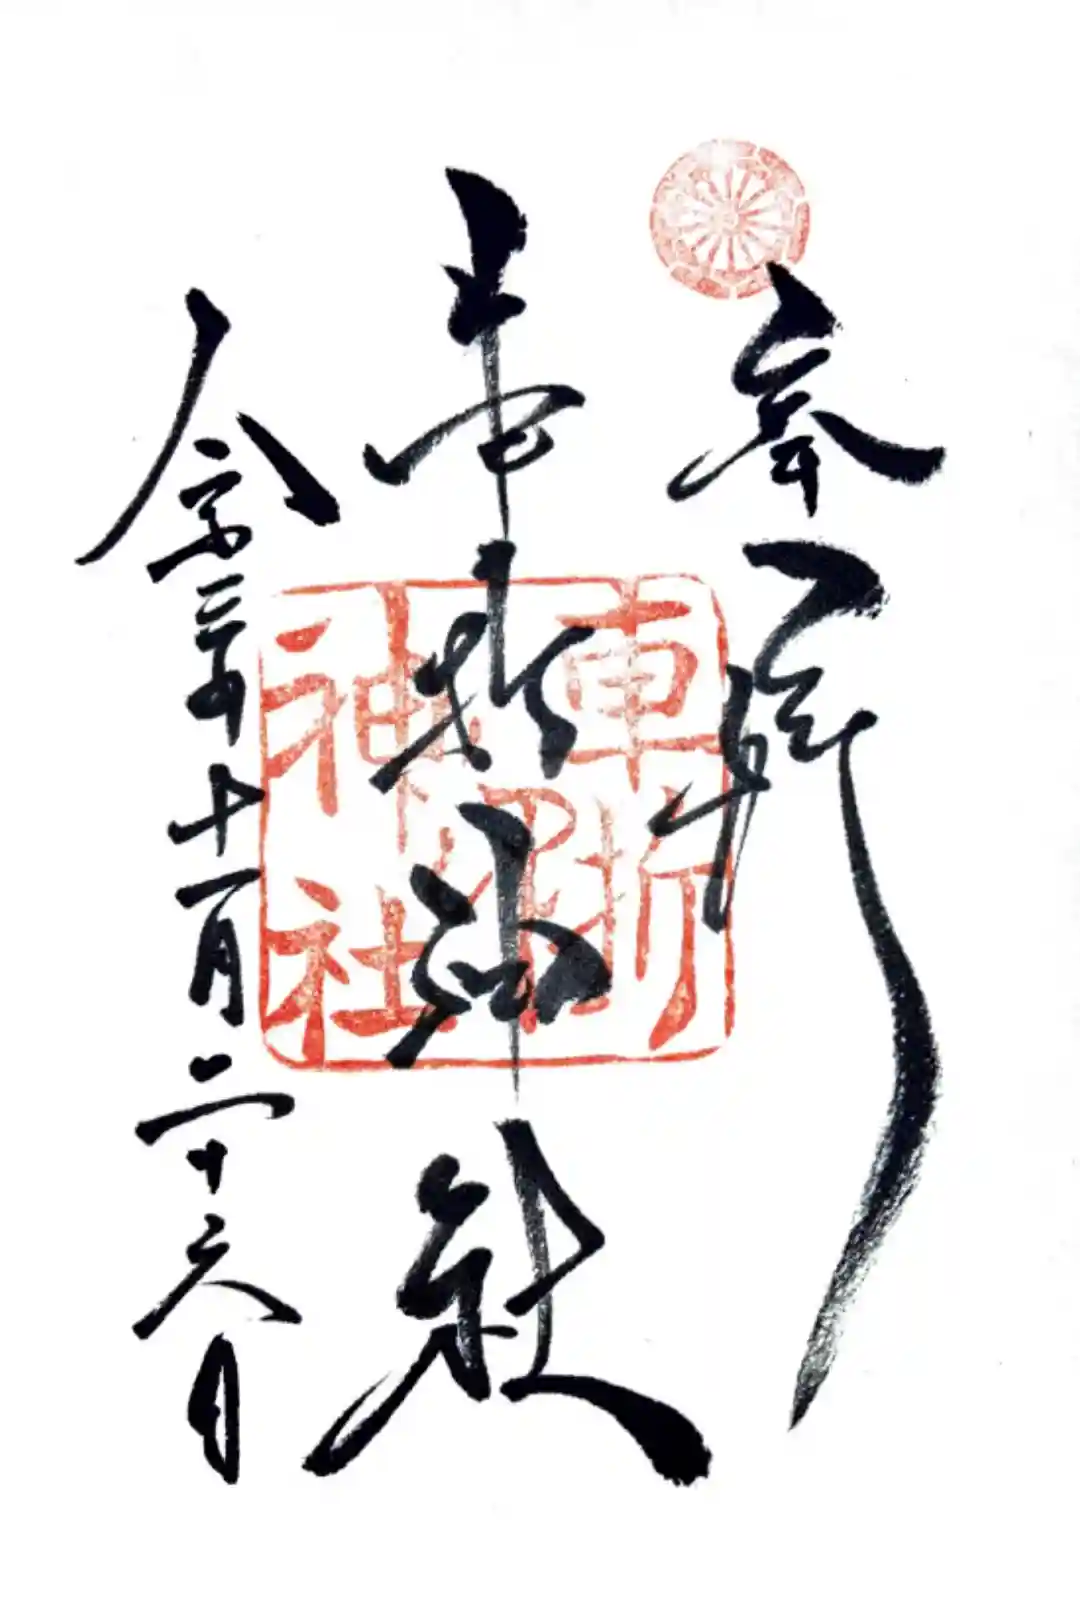 奉拝
車折神社
車折神社印
令和三年十一月二十六日